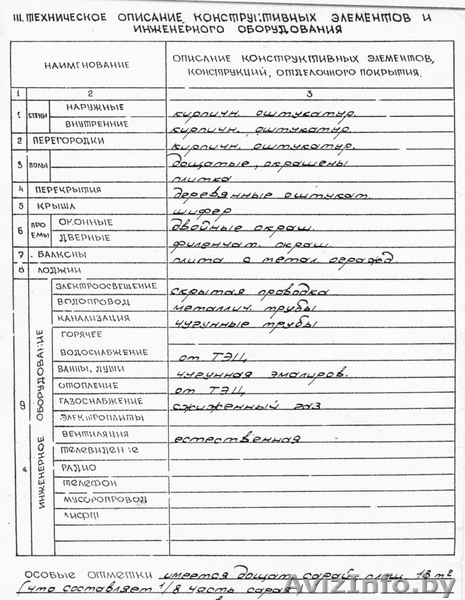 III. ТЕХНИЧЕСКОЕ ОПИСАНИЕ КОНСТРУКТИВНЫХ ЭЛЕМЕНТОВ И
ИНЖЕНЕРНОГО ОБОРУДОВАНИЯ
НАИМЕНОВАНИЕ ОПИСАНИЕ КОНСТРУКТИВНЫХ ЭЛЕМЕНТОВ,
КОНСТРУКЦИЙ, ОТДЕЛОЧНОГО ПОКРЫТИЯ.
1 2 3
1 СТЕНЫ НАРУЖНЫЕ кирпичн. оштукатур.
ВНУТРЕННИЕ кирпичн. оштукатур.
2 ПЕРЕГОРОДКИ кирпичн. оштукатур.
3 ПОЛЫ дощатые, окрашены
плитка
4 ПЕРЕКРЫТИЯ деревянные оштукат.
5 КРЫША шифер
6 ПРОЕМЫ ОКОННЫЕ двойные окраш.
ДВЕРНЫЕ филенчат. окраш.
7 БАЛКОНЫ плита с метал. огражд.
8 ЛОДЖИИ
9 ИНЖЕНЕРНОЕ ОБОРУДОВАНИЕ
ЭЛЕКТРООСВЕЩЕНИЕ скрытая проводка
ВОДОПРОВОД металлич. трубы
КАНАЛИЗАЦИЯ чугунные трубы
ГОРЯЧЕЕ
ВОДОСНАБЖЕНИЕ от ТЭЦ
ВАННЫ, ДУШИ чугунная эмалиров.
ОТОПЛЕНИЕ от ТЭЦ
ГАЗОСНАБЖЕНИЕ сжиженный газ
ЭЛЕКТРОПЛИТЫ
ВЕНТИЛЯЦИЯ естественная
ТЕЛЕВИДЕНИЕ
РАДИО
ТЕЛЕФОН
МУСОРОПРОВОД
ЛИФТ
ОСОБЫЕ ОТМЕТКИ имеется дощат. сарай площ. 18 м²
(что составляет 1/8 часть сарая
AvizInfo.by